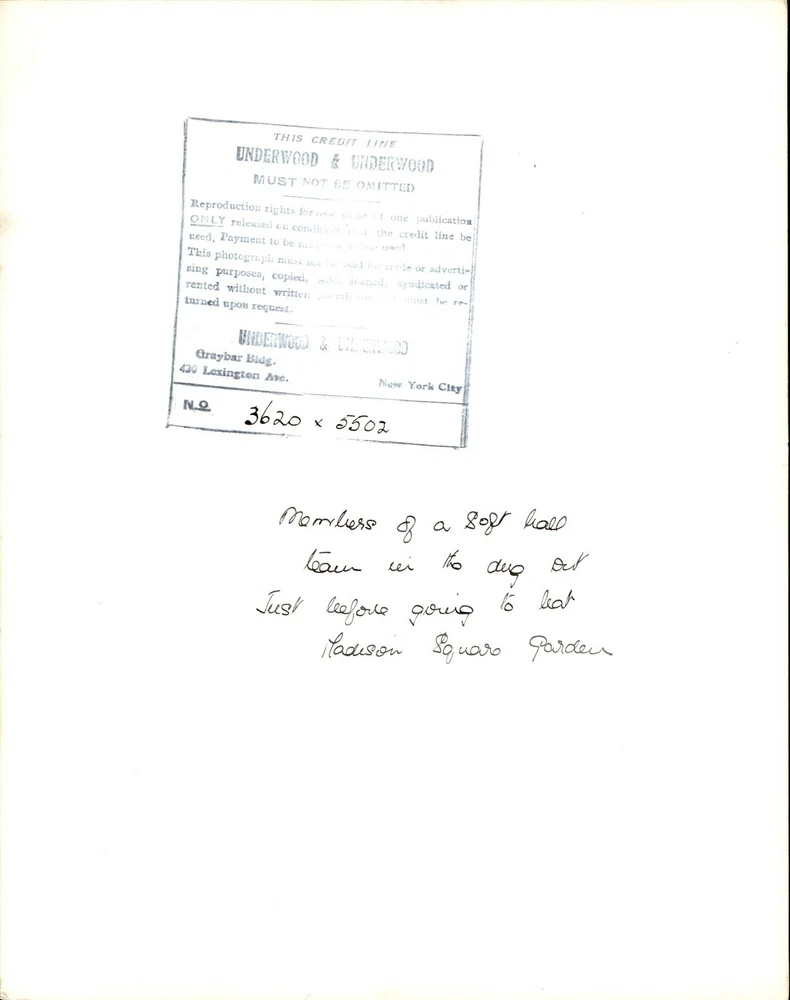 THIS CREDIT LINE
UNDERWOOD & UNDERWOOD
MUST NOT BE OMITTED
Reproduction rights for one of one publication
ONLY released on condition that the credit line be
used, Payment to be used
This photograph must not be used for trade or adverti-
sing purposes, copied, loaned, syndicated or
rented without written must be re-
turned upon request.
UNDERWOOD & UNDERWOOD
Graybar Bldg.
420 Lexington Ave.
New York City
N.O. 3620 x 5502
Members of a Soft ball
team in the dug out
Just before going to bat
Madison Square Garden